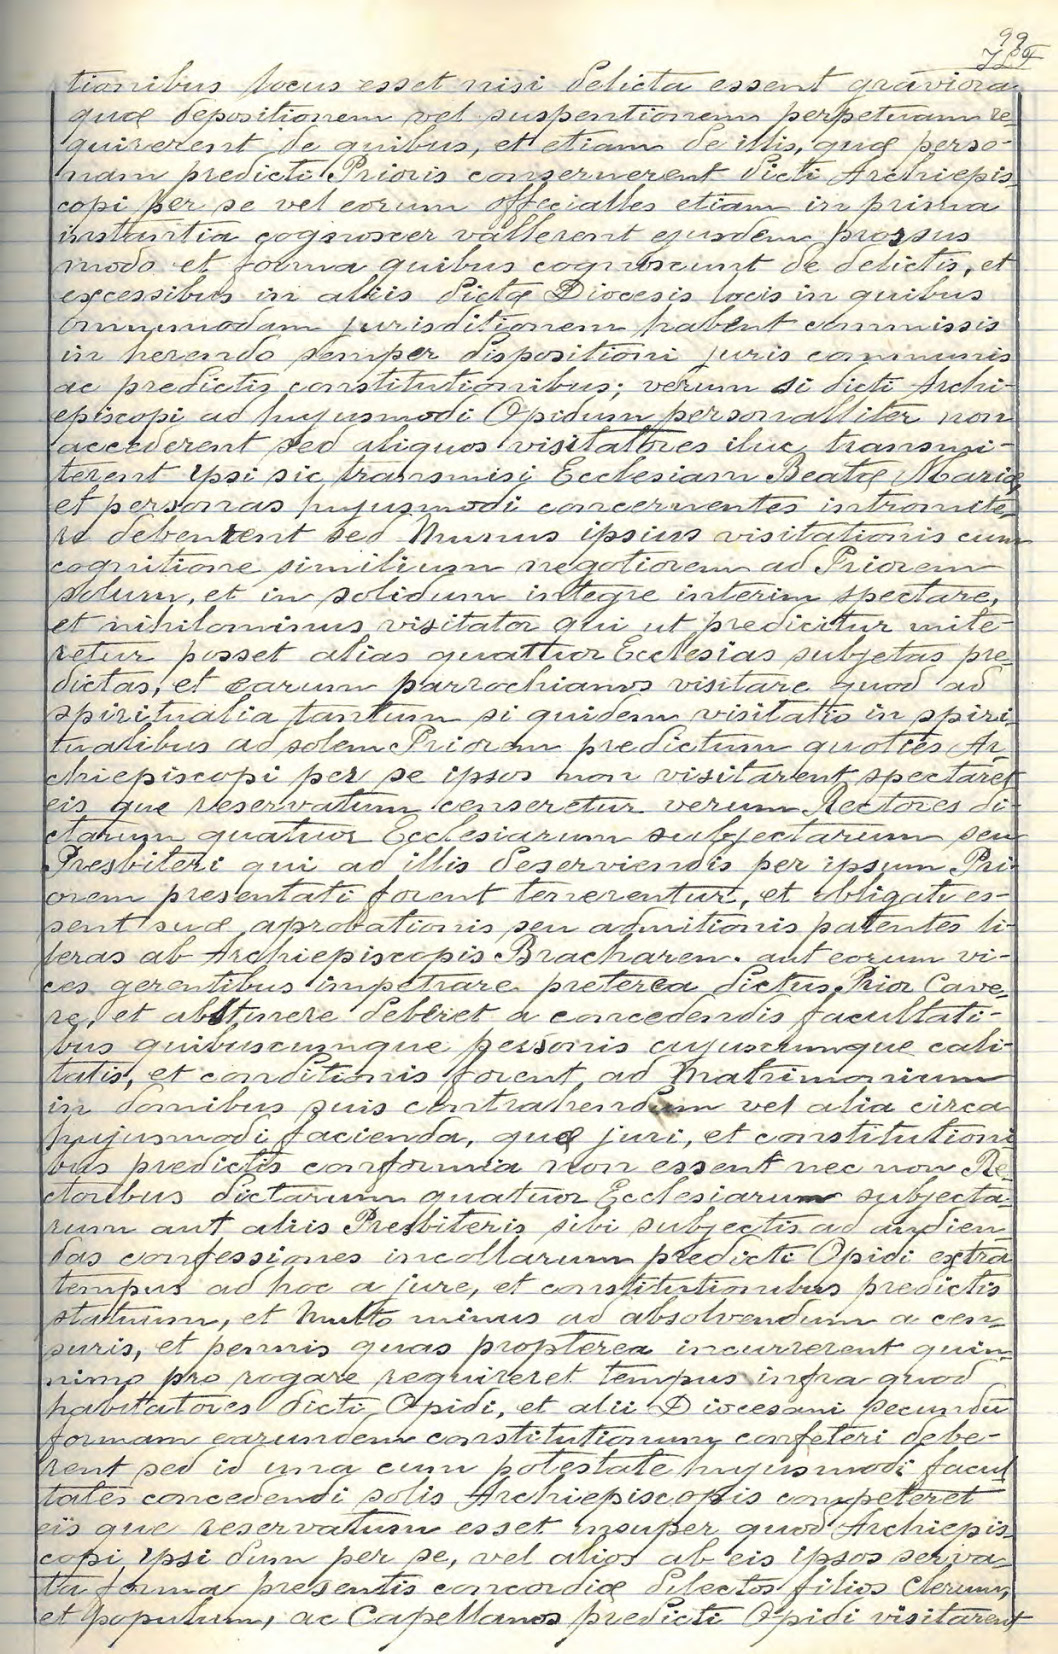 99
tionibus locus esset nisi delicta essent graviora
quæ depositionem vel suspentionem perpetuam re-
quirerent de quibus, et etiam de illis, quæ perso-
nam predicti Prioris consernerent dicti Archiepis-
copi per se vel eorum offecialles etiam in prima
instantia cognoscer vallerent ejusdem prorsus
modo et forma quibus cognoscunt de delictis, et
excessibus in aliis dictæ Diocesis locis in quibus
omnimodam jurisditionem habent commissis
in herendo semper dispositioni juris communis
ac predictis constitutionibus; verum si dicti Archi-
episcopi ad hujusmodi Opidum personalliter non
accederent sed aliquos visitatores iluc transmi-
terent ipsi sic transmisi Ecclesiam Beatæ Mariæ
et personas hujusmodi concernentes intromite-
re deberent sed munus ipsius visitationis cum
cognitione similium negotiorem ad Priorem
solum, et in solidum integre interim spectare,
et nihilominus visitator qui ut predicitur mite-
retur posset alias quattuor Ecclesias subjetas pre-
dictas, et earum parrochianos visitare quod ad
spiritualia tantum si quidem visitatio in spiri-
tualibus ad solem Priorem predictum quoties Ar-
chiepiscopi per se ipsos non visitarent spectaret
eis que reservatum censeretur verum Rectores di-
ctarum quatuor Ecclesiarum subjectarum seu
Presbiteri qui ad illis deserviendis per ipsum Pri-
orem presentati forent tenerentur, et obligati es-
sent suæ aprobationis seu admitionis patentes li-
teras ab Archiepiscopis Bracharen. aut eorum vi-
ces gerentibus impetrare preterea dictus Prior Cave-
re, et abstinere deberet a concedendis facultati-
bus quibuscumque personis cujuscumque cali-
tatis, et conditionis forent ad Matrimonium
in domibus suis contrahendum vel alia circa
hujusmodi facienda, quæ juri, et constitutioni
bus predictis conformia non essent nec non Re-
ctoribus dictarum quatuor Ecclesiarum subjecta-
rum aut aliis Presbiteris sibi subjectis ad audien-
das confessiones incollarum predicti Opidi extra
tempus ad hoc a jure, et constitutionibus predictis
statuum, et multo minus ad absolvendum a cen-
suris, et pennis quas propterea incurrerent quin-
nimo pro rogare requireret tempus infra quod
habitatores dicti Opidi, et alii Diocesani secundũ
formam earundem constitutionum confeteri debe-
rent sed id una cum potestate hujusmodi facul
tates concedendi solis Archiepiscopis competeret
eis que reservatum esset insuper quod Archiepis-
copi ipsi dum per se, vel alios ab eis ipsos serva-
ta forma presentis concordiæ dilectos filios Clerum,
et populum, ac Capellanos predicti Opidi visitarent